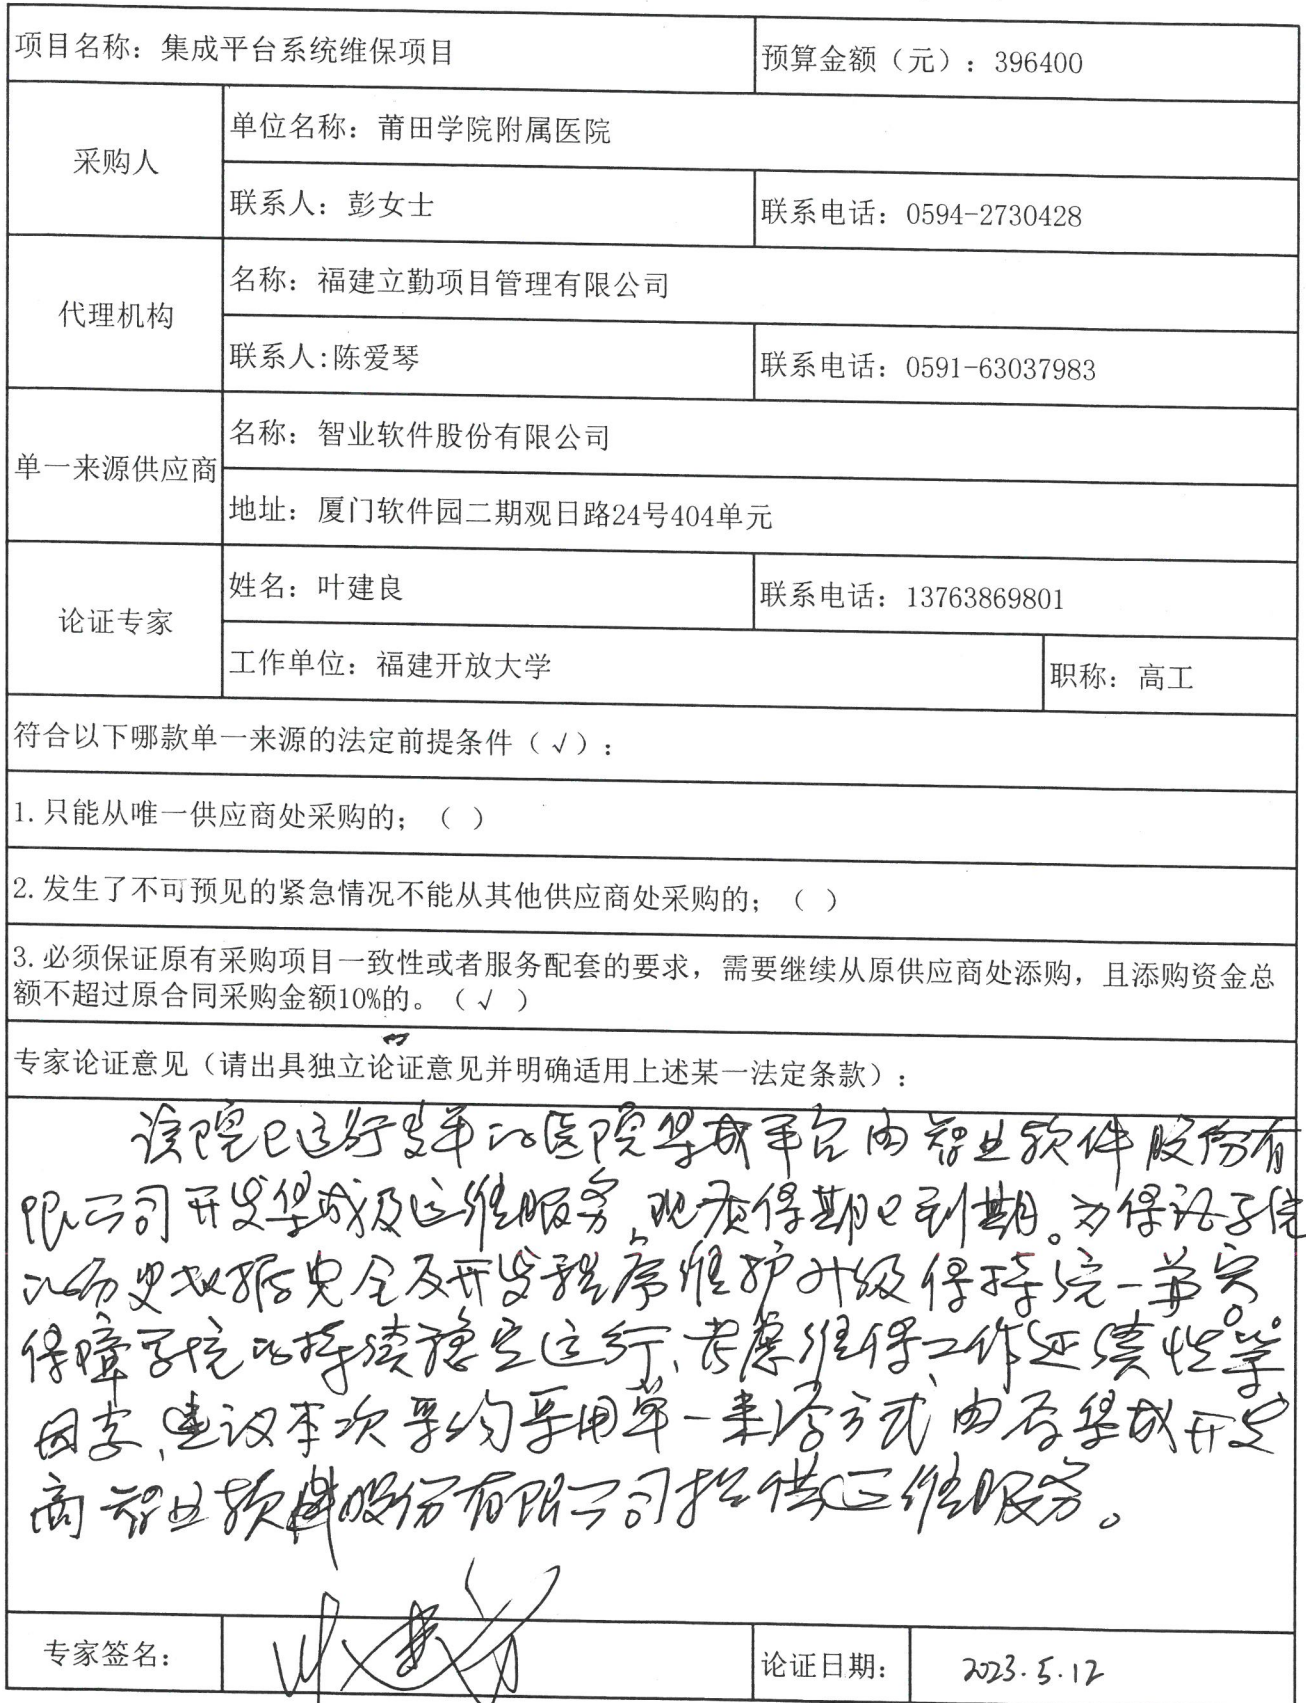 项目名称：集成平台系统维保项目
预算金额（元）：396400
采购人
单位名称：莆田学院附属医院
联系人：彭女士
联系电话：0594-2730428
代理机构
名称：福建立勤项目管理有限公司
联系人:陈爱琴
联系电话：0591-63037983
单一来源供应商
名称：智业软件股份有限公司
地址：厦门软件园二期观日路24号404单元
论证专家
姓名：叶建良
联系电话：13763869801
工作单位：福建开放大学
职称：高工
符合以下哪款单一来源的法定前提条件（√）：
1.只能从唯一供应商处采购的；（ ）
2.发生了不可预见的紧急情况不能从其他供应商处采购的；（ ）
3.必须保证原有采购项目一致性或者服务配套的要求，需要继续从原供应商处添购，且添购资金总
额不超过原合同采购金额10%的。（√ ）
专家论证意见（请出具独立论证意见并明确适用上述某一法定条款）：
该院已运行多年的医院集成平台由智业软件股份有
限公司开发集成及运维服务，现质保期已到期。为保证系统
的历史数据安全及开发程序维护升级保持统一
保障系统的持续稳定运行、考虑维保工作延续性等
因素，建议本次采购采用单一来源方式，由原集成开发
商智业软件股份有限公司提供运维服务。
专家签名：
论证日期：
2023.5.12